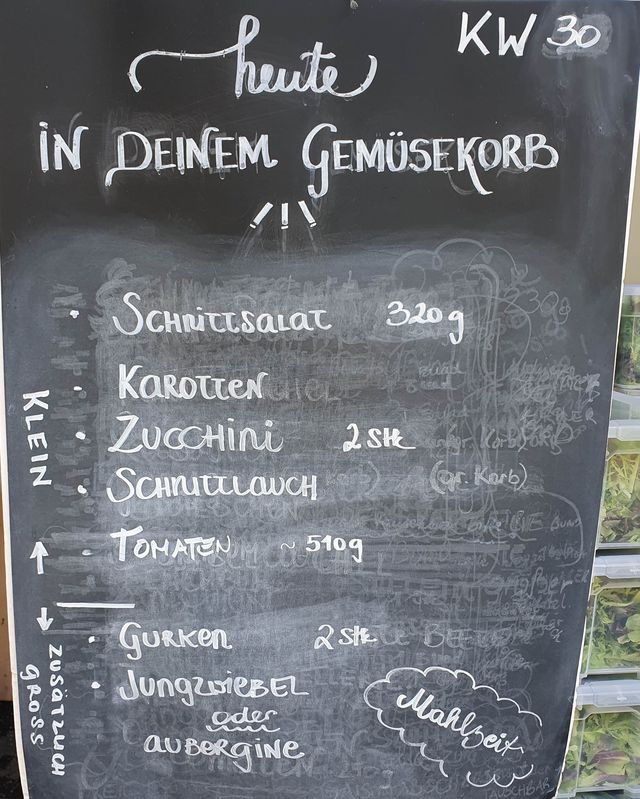 KW 30
heute
IN DEINEM GEMÜSEKORB
SCHNITTSALAT 320g
KAROTTEN
ZUCCHINI 2 Stk
SCHNITTLAUCH (gr. Korb)
TOMATEN ~ 510g
GURKEN 2 Stk
JUNGZWIEBEL
oder
AUBERGINE
KLEIN
ZUSÄTZLICH
GROSS
Mahlzeit